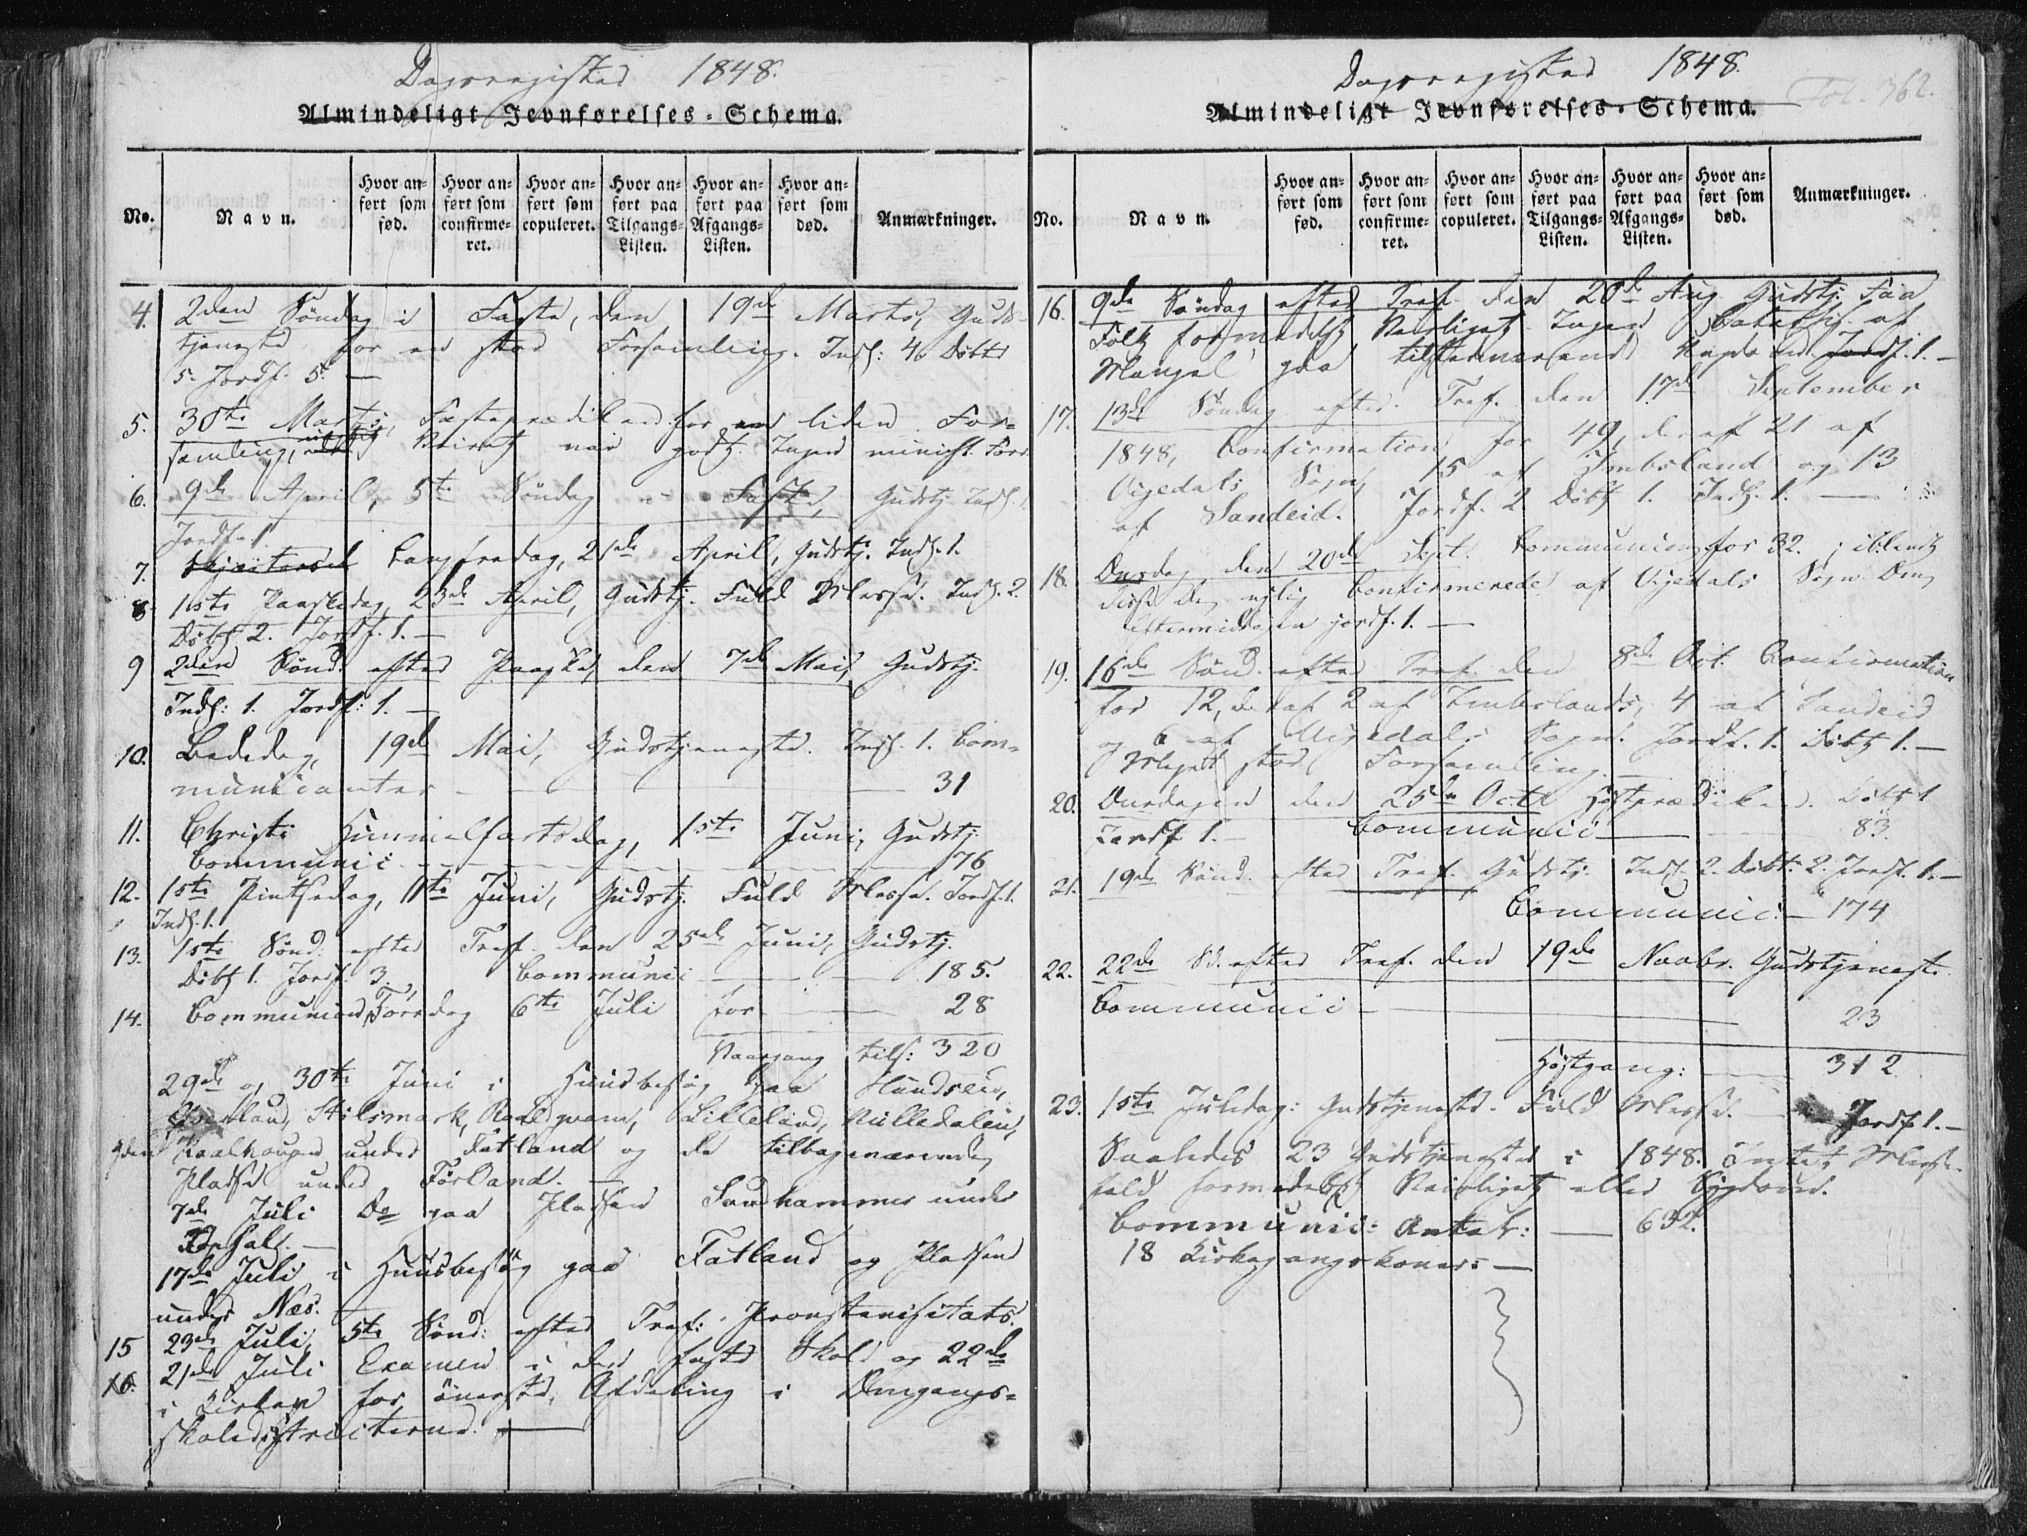 Dagsregister 1848.
Almindeligt Jevnførelses-Schema.
No.
Navn.
Hvor anført som fød.
Hvor anført som confirmeret.
Hvor anført som copuleret.
Hvor anført paa Tilgangs-Listen.
Hvor anført paa Afgangs-Listen.
Hvor anført som død.
Anmærkninger.
4. 2den Søndag i Faste, den 19de Marts, Guds-
tjeneste for en stor Forsamling. Indl: 4 Døbte
5. Jordf. 5. —
5. 30te Marts, Fasteprædiken for en liden For-
samling, Veiret var godt. Ingen
6. 9de April, 5te Søndag i Faste, Gudstj. Indl.
Jordf. 1
7. Langfredag, 21de April, Gudstj. Indl. 1.
8 1ste Paaskedag, 23de April, Gudstj. Fuld Messe. Indl. 2.
Døbt 2. Jordf. 1. —
9 2den Sønd. efter Paaske, den 7de Mai, Gudstj.
Indl: 1. Jordf: 1. —
10. Bededag, 19de Mai, Gudstjeneste. Indl. 1. Com-
municanter — 31
11. Christi Himmelfartsdag, 1ste Juni, Gudstj.
Communic: — 76
12. 1ste Pintsedag, 11te Juni, Gudstj. Fuld Messe. Jordf. 1.
Indl. 1.
13. 1ste Sønd. efter Tref. den 25de Juni, Gudstj.
Døbt 1. Jordf. 3 Communic: — 185.
14. Communion, Torsdag 6te Juli for — 28
Vaargang tils: 320
29de og 30te Juni i Huusbesøg paa Hundseid,
Stilsmark, Lilleland,
under Fatland og de tilbageværende
Pladse under Førland. —
7de Juli Do paa Pladsen Sandhammer under
17de Juli i Huusbesøg paa Fatland og Pladsene
under Næs.
15 23de Juli, 5te Sønd: efter Tref: Provstevisitats.
16. 21de Juli Examen i den faste Skole og 22de
i Kirken for øverste Afdeling i Omgangs-
skoledistricterne. —
Dagsregister 1848.
Fol. 362.
Almindeligt Jevnførelses-Schema.
No.
Navn.
Hvor anført som fød.
Hvor anført som confirmeret.
Hvor anført som copuleret.
Hvor anført paa Tilgangs-Listen.
Hvor anført paa Afgangs-Listen.
Hvor anført som død.
Anmærkninger.
16. 9de Søndag efter Tref. den 20de Aug Gudstj. Faa
Folk formedelst Veirliget. Ingen af
Mangel paa tilstedeværende Jordf. 1. —
17. 13de Søndag efter Tref. den 17de September
1848, Confirmation for 49, deraf 21 af
Vigedals Sogn, 15 af Imbsland og 13
af Sandeid. Jordf. 2 Døbt 1. Indl. 1. —
18. Onsdag den 20de Sept. Communion for 32. iblandt
disse nylig Confirmerede af Vigedals Sogn.
Eftermiddagen jordf. 1. —
19. 16de Sønd. efter Tref. den 8de Oct. Confirmation
for 12, deraf 2 af Imbslands, 4 af Sandeid
og 6 af Vigedals Sogn. Jordf. 1. Døbt 1. —
Meget stor Forsamling.
20. Onsdagen den 25de Octb Høstprædiken. Døbt 1
Jordf. 1. — Communic: — 83.
21. 19de Sønd. efter Tref. Gudstj. Indl. 2. Døbt: 2. Jordf. 1. —
Communic: — 174
22. 22de S. efter Tref. den 19de Novbr. Gudstjeneste
Communic: — 23
Høstgang: — 312.
23. 1ste Juledag: Gudstjeneste. Fuld Messe. Jordf 1. —
Saaledes 23 Gudstjenester i 1848. Intet Messe-
fald formedelst Veirliget eller Sygdom.
Communic: Antal: — 632.
18 Kirkegangskoner: —